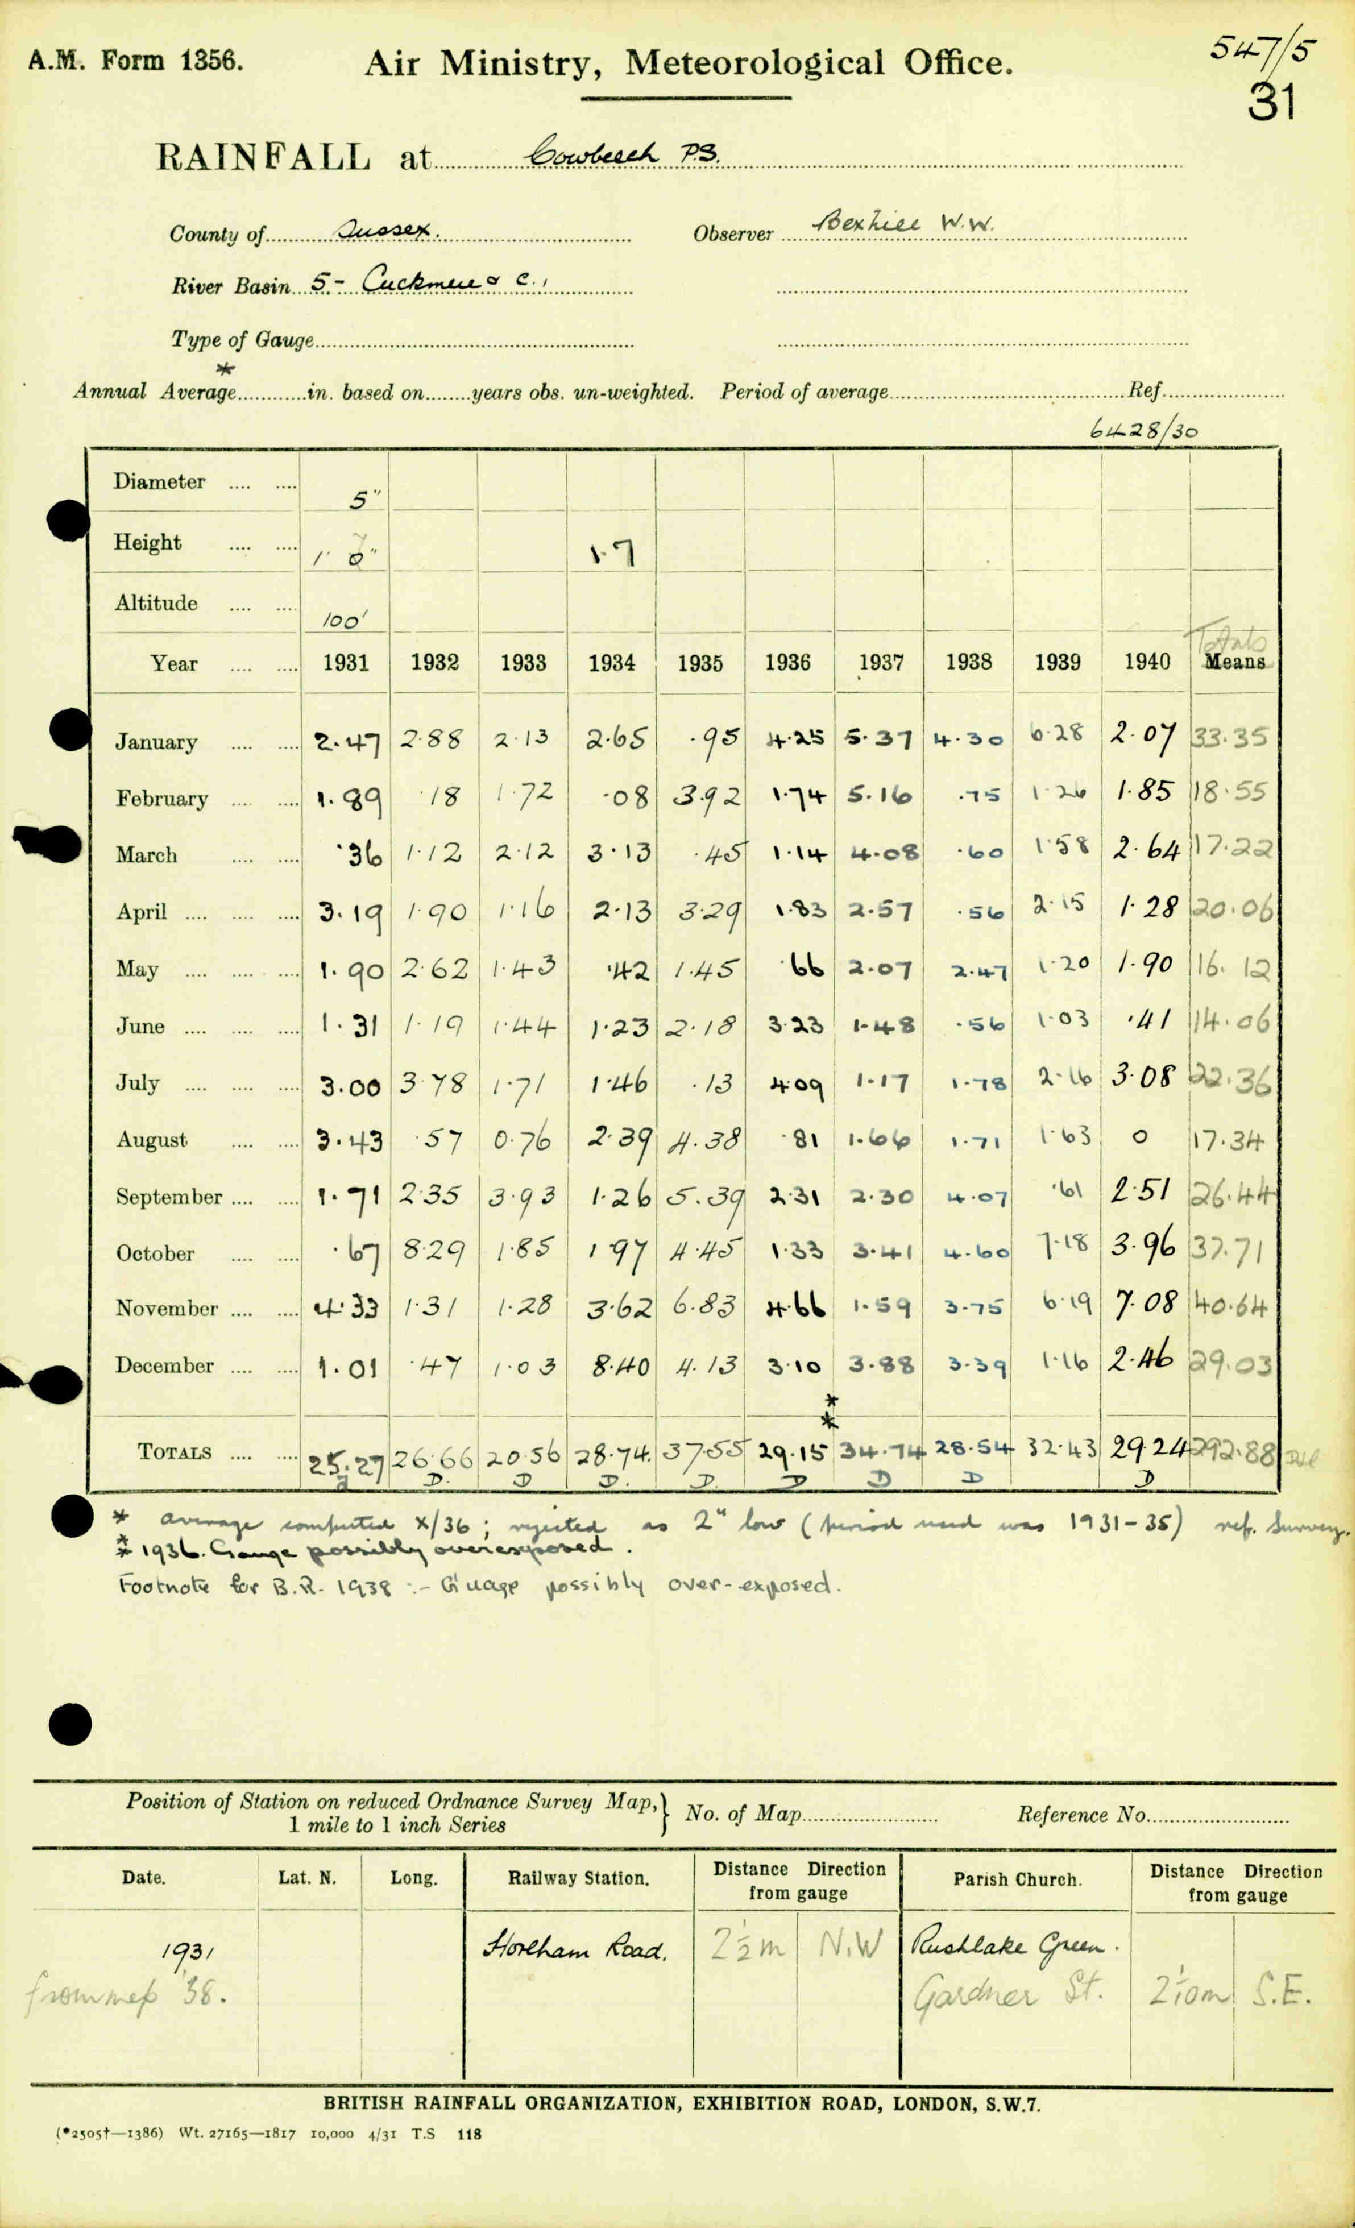 A.M. Form 1356.
Air Ministry, Meteorological Office.
547/5
31
RAINFALL at Cowbeech P.S.
County of Sussex. Observer Bexhill W.W.
River Basin 5 - Cuckmere & c.,
Type of Gauge
*
Annual Average in. based on years obs. un-weighted. Period of average Ref.
6428/30
Diameter 5"
Height 1' 0" 1·7
Altitude 100'
Totals
Year 1931 1932 1933 1934 1935 1936 1937 1938 1939 1940 Means
January 2·47 2·88 2·13 2·65 ·95 4·25 5·37 4·30 6·28 2·07 33·35
February 1·89 ·18 1·72 ·08 3·92 1·74 5·16 ·75 1·26 1·85 18·55
March ·36 1·12 2·12 3·13 ·45 1·14 4·08 ·60 1·58 2·64 17·22
April 3·19 1·90 1·16 2·13 3·29 1·83 2·57 ·56 2·15 1·28 20·06
May 1·90 2·62 1·43 ·42 1·45 ·66 2·07 2·47 1·20 1·90 16·12
June 1·31 1·19 1·44 1·23 2·18 3·23 1·48 ·56 1·03 ·41 14·06
July 3·00 3·78 1·71 1·46 ·13 4·09 1·17 1·78 2·16 3·08 22·36
August 3·43 ·57 0·76 2·39 4·38 ·81 1·66 1·71 1·63 0 17·34
September 1·71 2·35 3·93 1·26 5·39 2·31 2·30 4·07 ·61 2·51 26·44
October ·67 8·29 1·85 1·97 4·45 1·33 3·41 4·60 7·18 3·96 37·71
November 4·33 1·31 1·28 3·62 6·83 4·66 1·59 3·75 6·19 7·08 40·64
December 1·01 ·47 1·03 8·40 4·13 3·10 3·88 3·39 1·16 2·46 29·03
*
*
TOTALS 25·27 26·66 20·56 28·74 37·55 29·15 34·74 28·54 32·43 29·24 292·88
D. D D. D. D D D D
* average computed X/36; rejected as 2" low (period used was 1931-35) ref. Survey.
* * 1936. Gauge possibly overexposed.
Footnote for B.R. 1938 :- Guage possibly over-exposed.
Position of Station on reduced Ordnance Survey Map, } No. of Map Reference No.
1 mile to 1 inch Series
Date. Lat. N. Long. Railway Station. Distance Direction from gauge Parish Church. Distance Direction from gauge
1931 Horeham Road. 2½m N.W Rushlake Green.
from map '38. Gardner St. S.E.
BRITISH RAINFALL ORGANIZATION, EXHIBITION ROAD, LONDON, S.W.7.
(*2505†—1386) Wt. 27165—1817 10,000 4/31 T.S 118